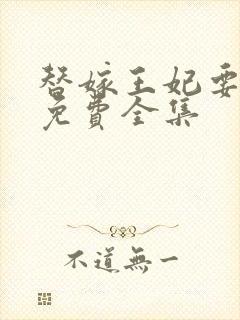 替嫁王妃要
免費全集
不道無一